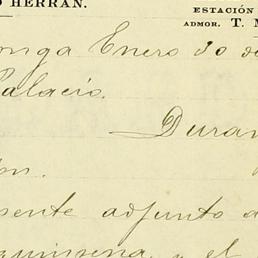 O HERRAN.
ESTACIÓN
ADMOR. T. M
onga Enero 30 de
Palacio.
Duran
on.
sente adjunto a
quincena, y el